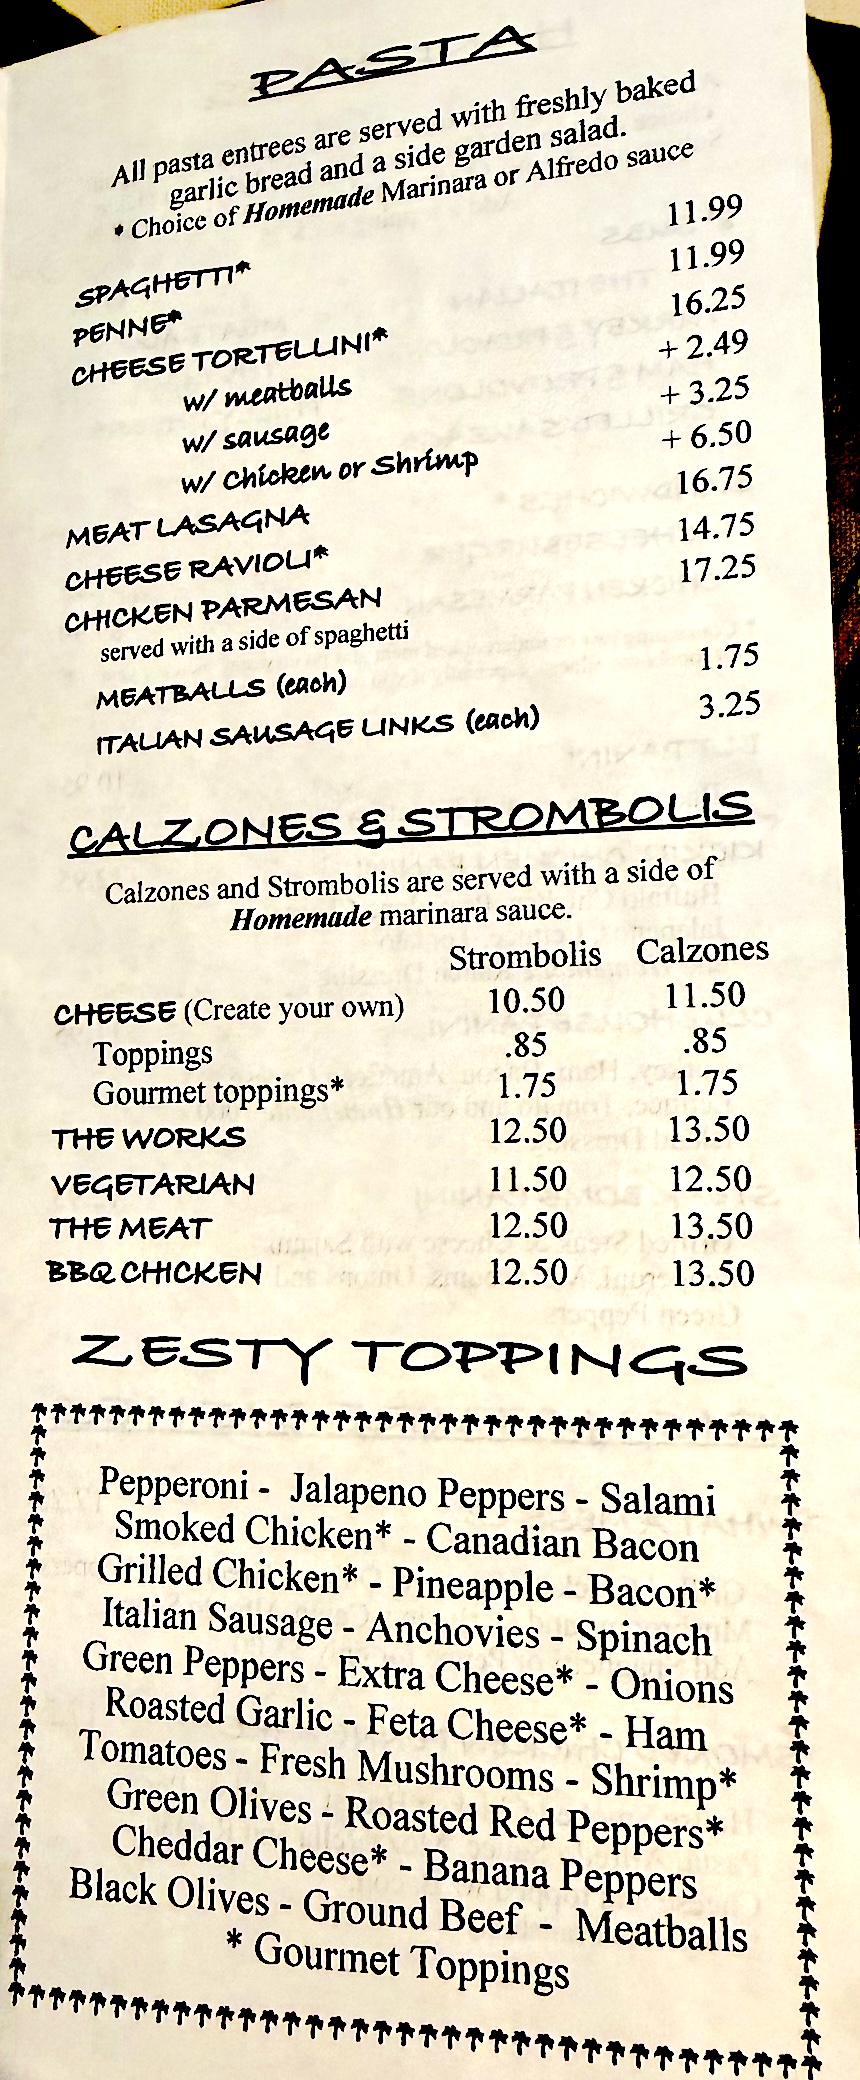 PASTA
All pasta entrees are served with freshly baked
garlic bread and a side garden salad.
* Choice of Homemade Marinara or Alfredo sauce
SPAGHETTI* 11.99
PENNE* 11.99
CHEESE TORTELLINI* 16.25
w/ meatballs + 2.49
w/ sausage + 3.25
w/ Chicken or Shrimp + 6.50
MEAT LASAGNA 16.75
CHEESE RAVIOLI* 14.75
CHICKEN PARMESAN 17.25
served with a side of spaghetti
MEATBALLS (each) 1.75
ITALIAN SAUSAGE LINKS (each) 3.25
CALZONES & STROMBOLIS
Calzones and Strombolis are served with a side of
Homemade marinara sauce.
Strombolis Calzones
CHEESE (Create your own) 10.50 11.50
Toppings .85 .85
Gourmet toppings* 1.75 1.75
THE WORKS 12.50 13.50
VEGETARIAN 11.50 12.50
THE MEAT 12.50 13.50
BBQ CHICKEN 12.50 13.50
ZESTY TOPPINGS
Pepperoni - Jalapeno Peppers - Salami
Smoked Chicken* - Canadian Bacon
Grilled Chicken* - Pineapple - Bacon*
Italian Sausage - Anchovies - Spinach
Green Peppers - Extra Cheese* - Onions
Roasted Garlic - Feta Cheese* - Ham
Tomatoes - Fresh Mushrooms - Shrimp*
Green Olives - Roasted Red Peppers*
Cheddar Cheese* - Banana Peppers
Black Olives - Ground Beef - Meatballs
* Gourmet Toppings